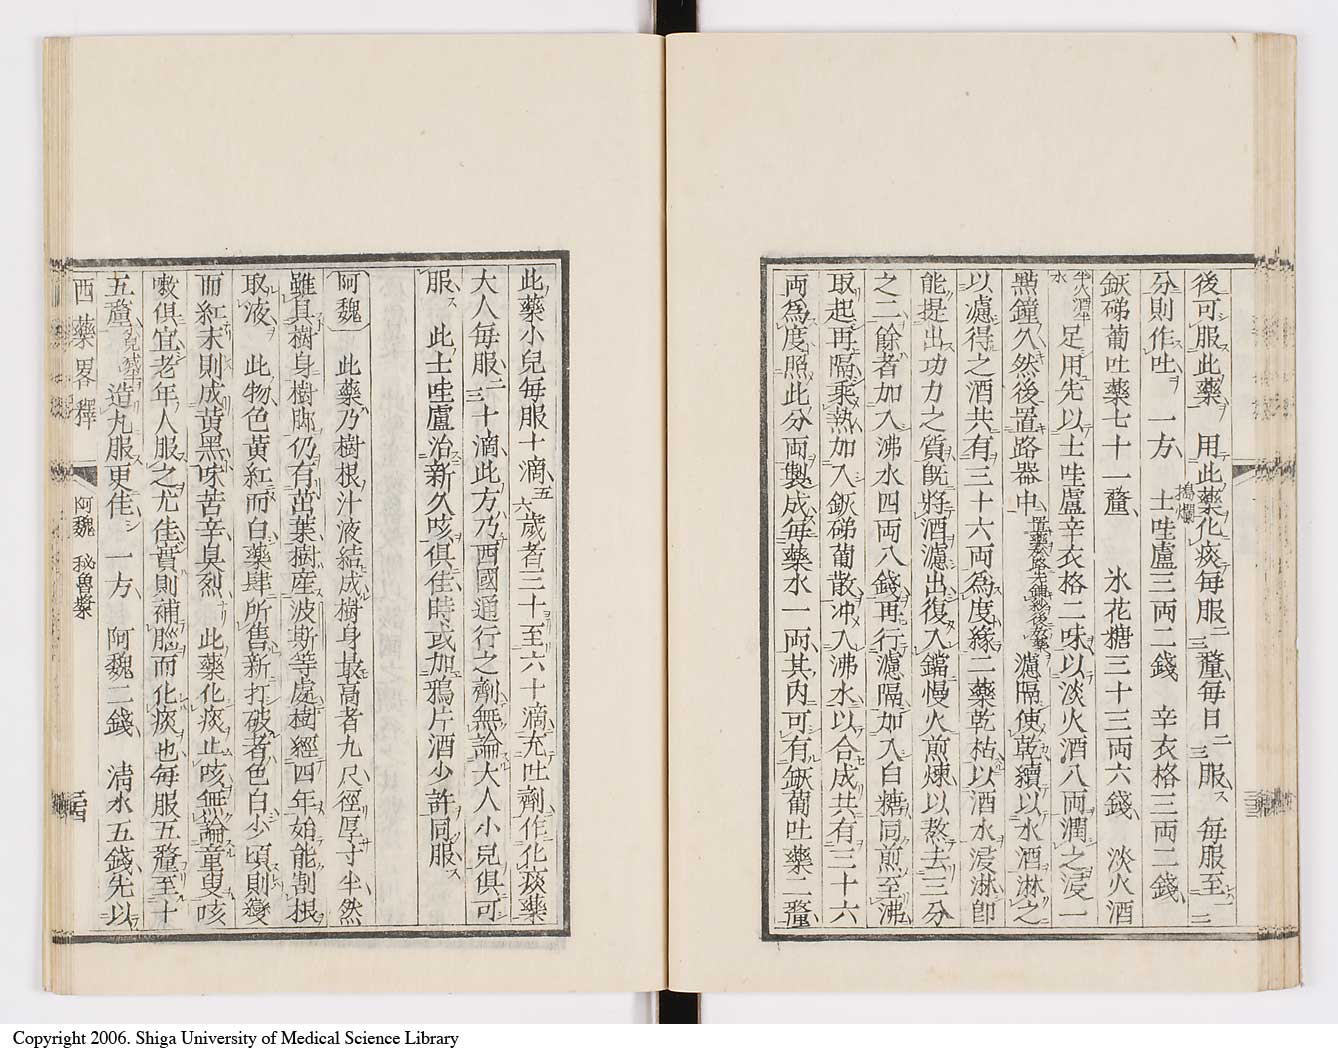 後可服此藥 用此藥化痰毎服二三釐毎日二三服 毎服至一二
分則作吐 一方 搗爛 士哇盧三両二錢 辛衣格三両二錢
鈹硪葡吐藥七十一釐 氷花糖三十三両六錢 淡火酒
半火酒半水 足用先以士哇盧辛衣格二味以淡火酒八両潤之浸一
點鐘久然後置路器中 濾隔使乾續以水酒淋之
以濾得之酒共有三十六両為度緣二藥乾枯以酒水浸淋即
能提出功力之質既將酒濾出復入鐺慢火煎煉以熬去三分
之二餘者加入沸水四両八錢再行濾隔加入白糖同煎至沸
取起再隔乘熱加入鈹硪葡散冲入沸水以合成共有三十六
両為度照此分両製成毎藥水一両其内可有鈹葡吐藥二釐
此藥小兒毎服十滴五六歲者三十至六十滴充吐劑作化痰藥
大人毎服二三十滴此方乃西國通行之劑無論大人小兒俱可
服 此士哇盧治新久咳俱佳時或加鴉片酒少許同服
阿魏 此藥乃樹根汁液結成樹身最高者九尺徑厚寸半然
雖具樹身樹脚仍有茁葉樹産波斯等處樹經四年始能割根
取液 此物色黃紅而白藥肆所售新打破者色白少頃則變
而紅末則成黃黑味苦辛臭烈 此藥化痰止咳無論童叟咳
嗽俱宜老年人服之尤佳實則補腦而化痰也毎服五釐至十
五釐 造丸服更佳 一方 阿魏二錢 清水五錢先以
西藥畧釋 阿魏 秘魯漿